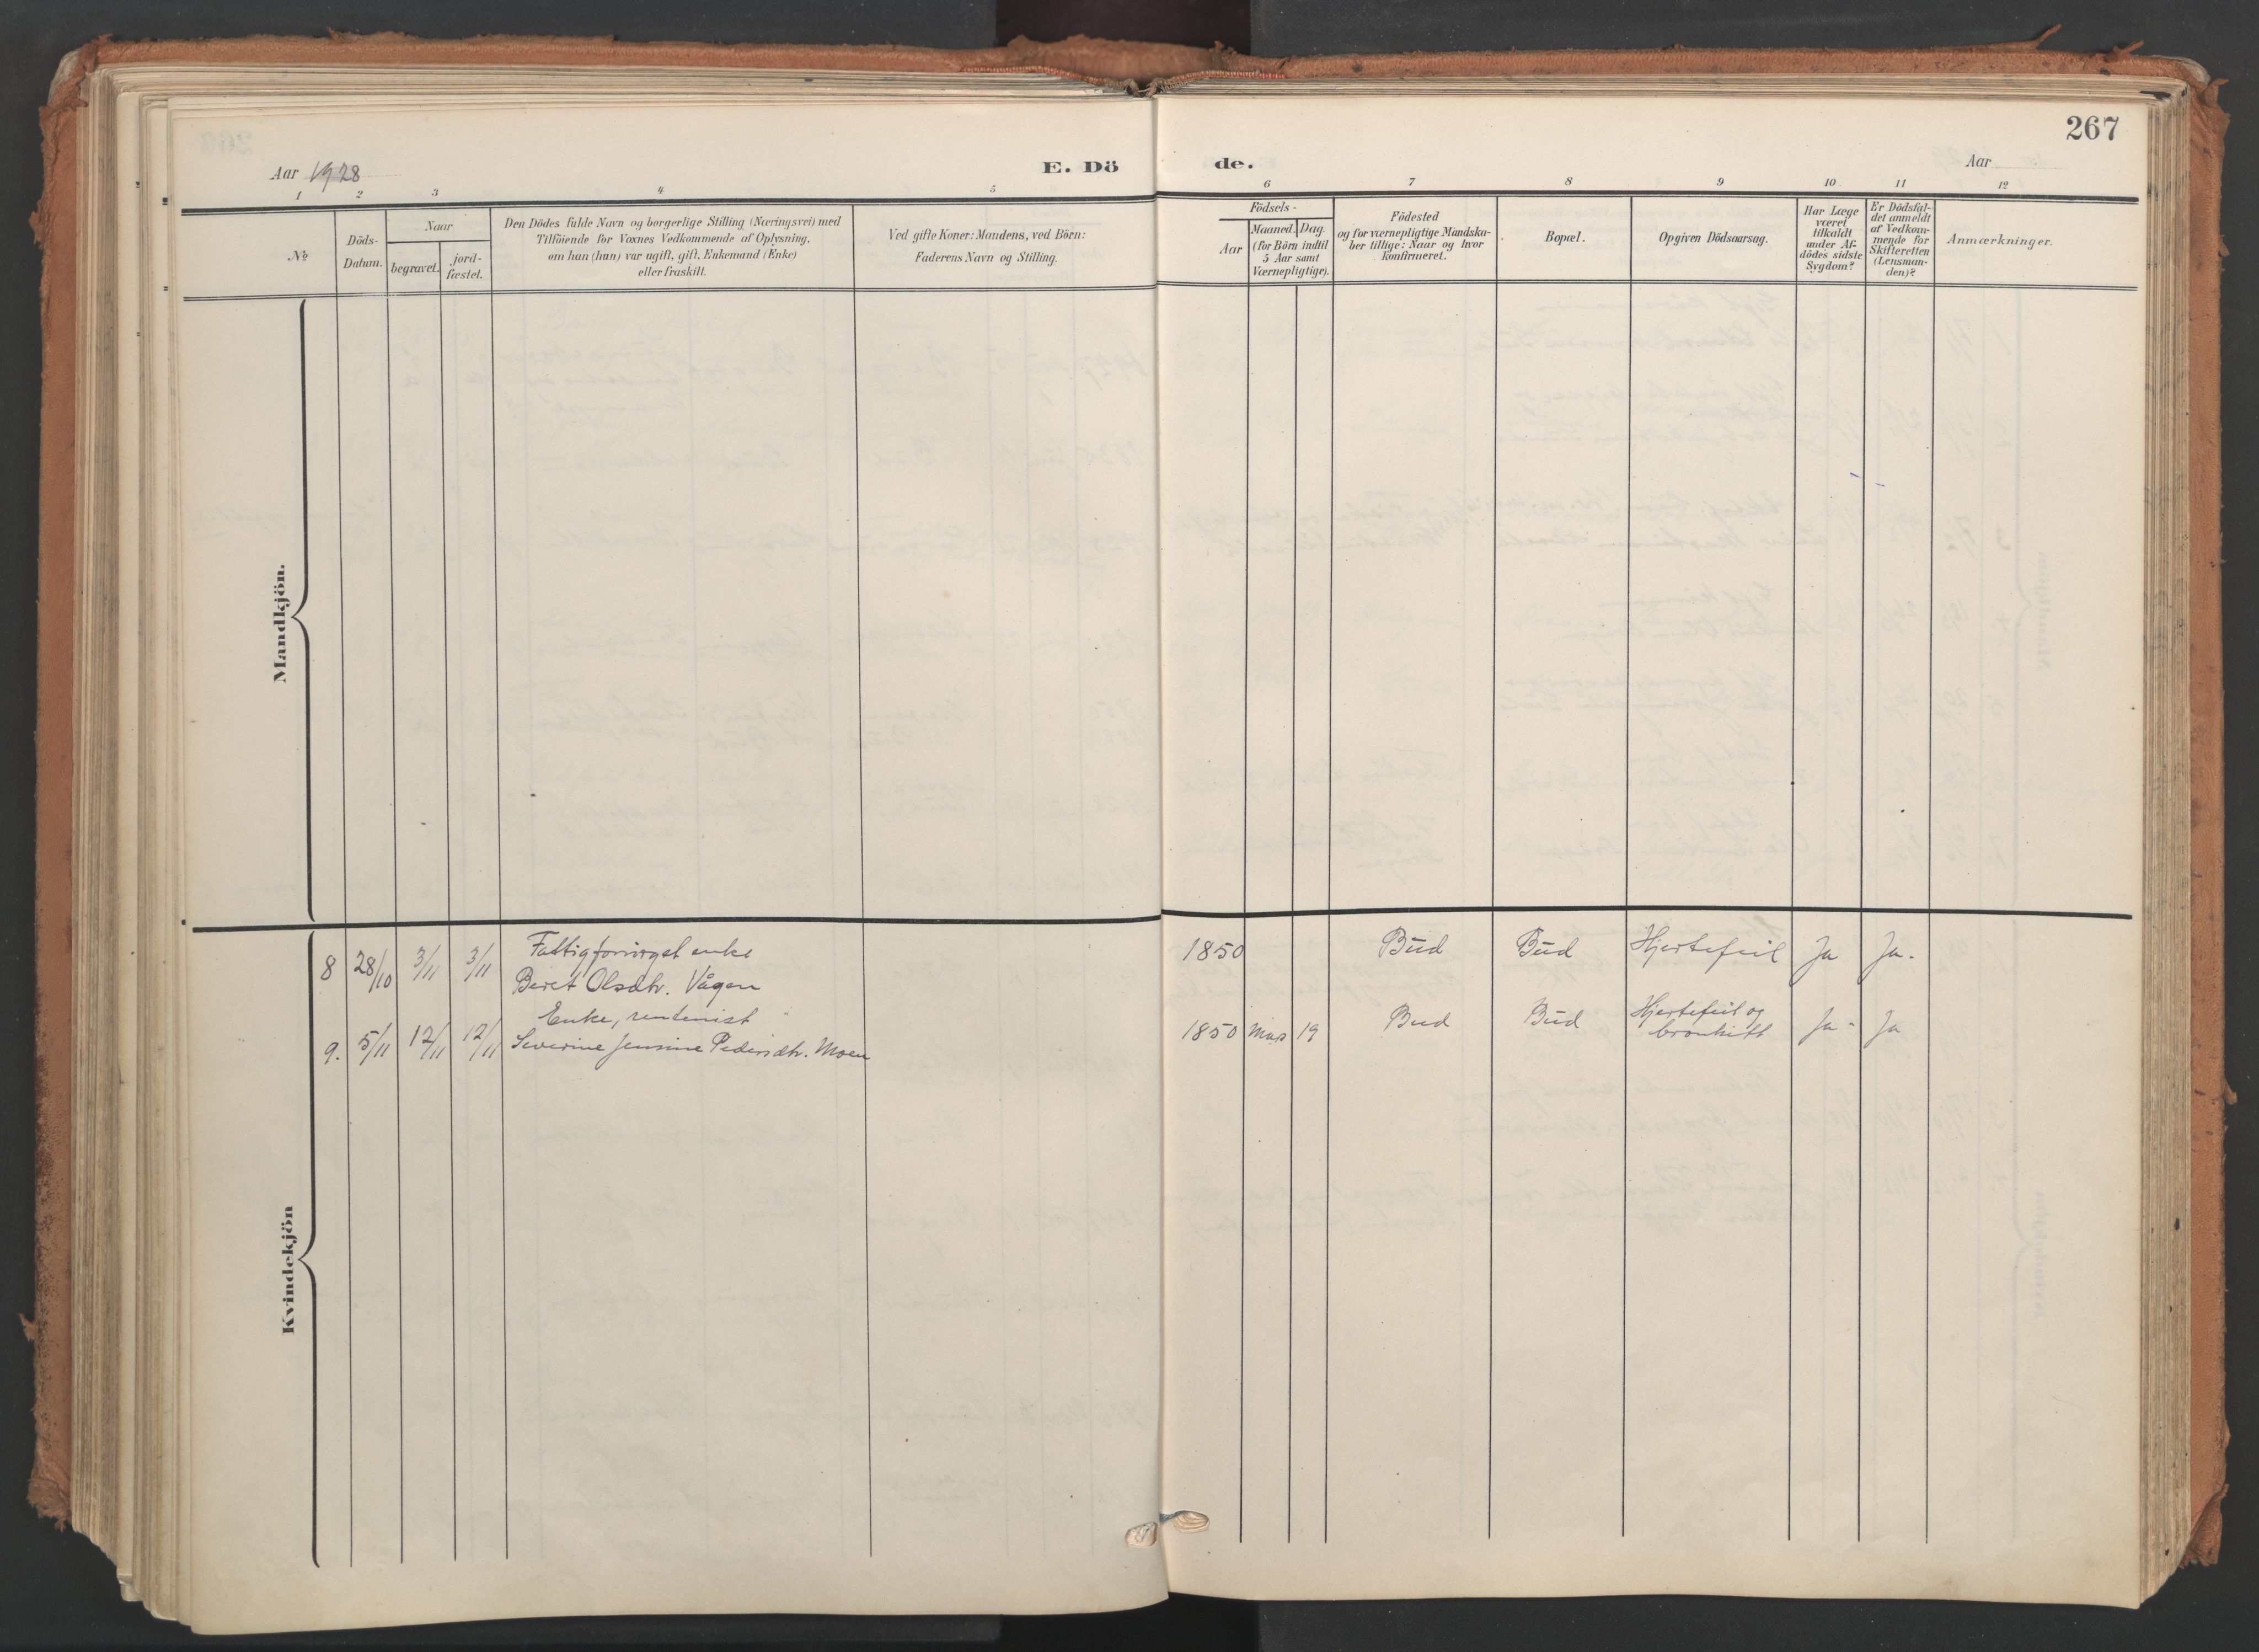 267
Aar 1928
E. Dö
de.
Aar
1 2 3 4 5 6 7 8 9 10 11 12
No
Döds-
Datum.
Naar
begravet.
jord-
fæstet.
Den Dödes fulde Navn og borgerlige Stilling (Næringsvei) med
Tilföiende for Voxnes Vedkommende af Oplysning,
om han (hun) var ugift, gift, Enkemand (Enke)
eller fraskilt.
Ved gifte Koner: Mandens, ved Börn:
Faderens Navn og Stilling.
Födsels-
Aar
Maaned.
Dag.
(for Börn indtil
5 Aar samt
Værnepligtige).
Födested
og for værnepligtige Mandska-
ber tillige: Naar og hvor
konfirmeret.
Bopæl.
Opgiven Dödsaarsag.
Har Læge
været
tilkaldt
under Af-
dödes sidste
Sygdom?
Er Dödsfal-
det anmeldt
af Vedkom-
mende for
Skifteretten
(Lensman-
den)?
Anmærkninger.
Mandkjön.
Kvindekjön
Fattigforsörget enke
8 28/10 3/11 3/11 Beret Olsdtr. Vågen 1850 Bud Bud Hjertefeil Ja Ja.
Enke, rentenist
9. 5/11 12/11 12/11 Severine Jensine Pedersdtr. Moen 1850 Mars 19 Bud Bud Hjertefeil og
bronkitt Ja - Ja